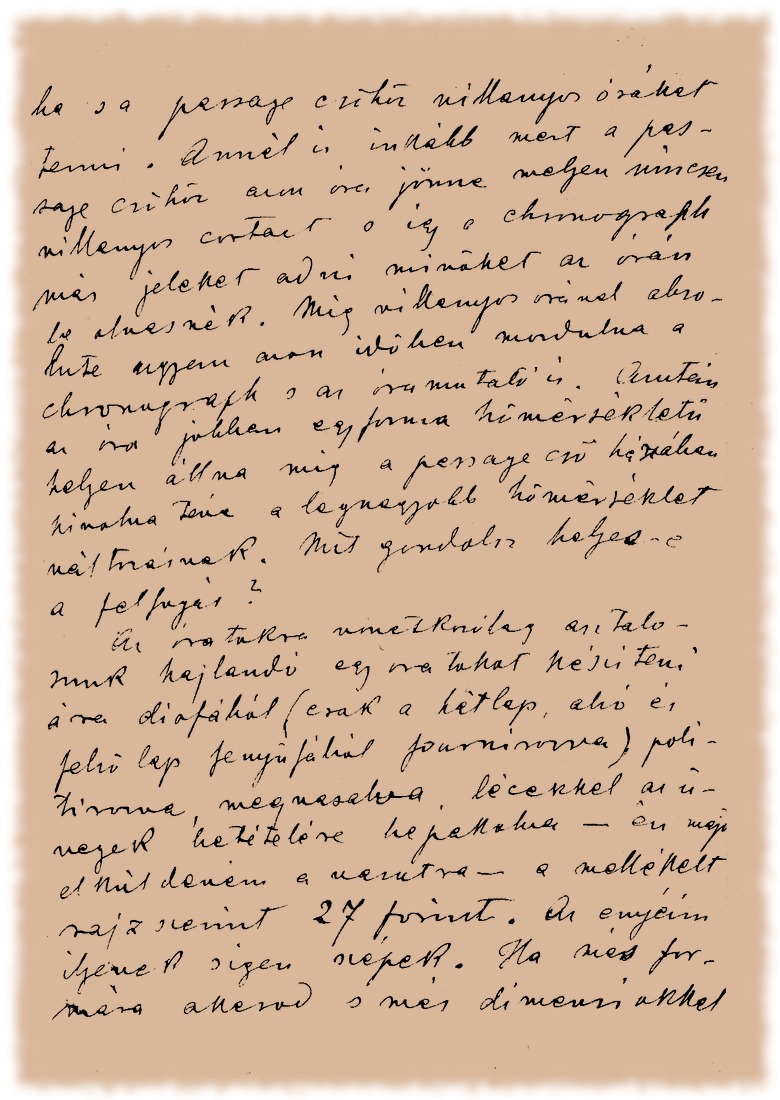 ba s a passage csőhöz villanyos órákat
tenni. Annál is inkább mert a pas-
sage csőhöz azon óra jönne melyen nincsen
villanyos contact s így a chronograph
más jeleket adni minőket az órán
le olvasnék. Míg villanyos óránál abso-
lute egyszerre azon időben mozdulna a
chronograph s az óramutató is. Azután
az óra jobban egyforma hőmérsékletű
helyen állna míg a passage cső házában
kivolna téve a legnagyobb hőmérséklet
változásnak. Mit gondolsz helyes-e
a felfogás?
Az óratokra vonatkozólag asztalo-
sunk hajlandó egy óratokot készíteni
ára diófából (csak a hátlap, alsó és
felső lap fenyűfából fournirozva) poli-
tirozva, megvasalva, lécekkel az ü-
vegek betételére bepakolva — én majd
elküldeném a vasutra — a mellékelt
rajz szerint 27 forint. Az enyéim
ilyenek s igen szépek. Ha más for-
mára akarod s más dimensiókkal